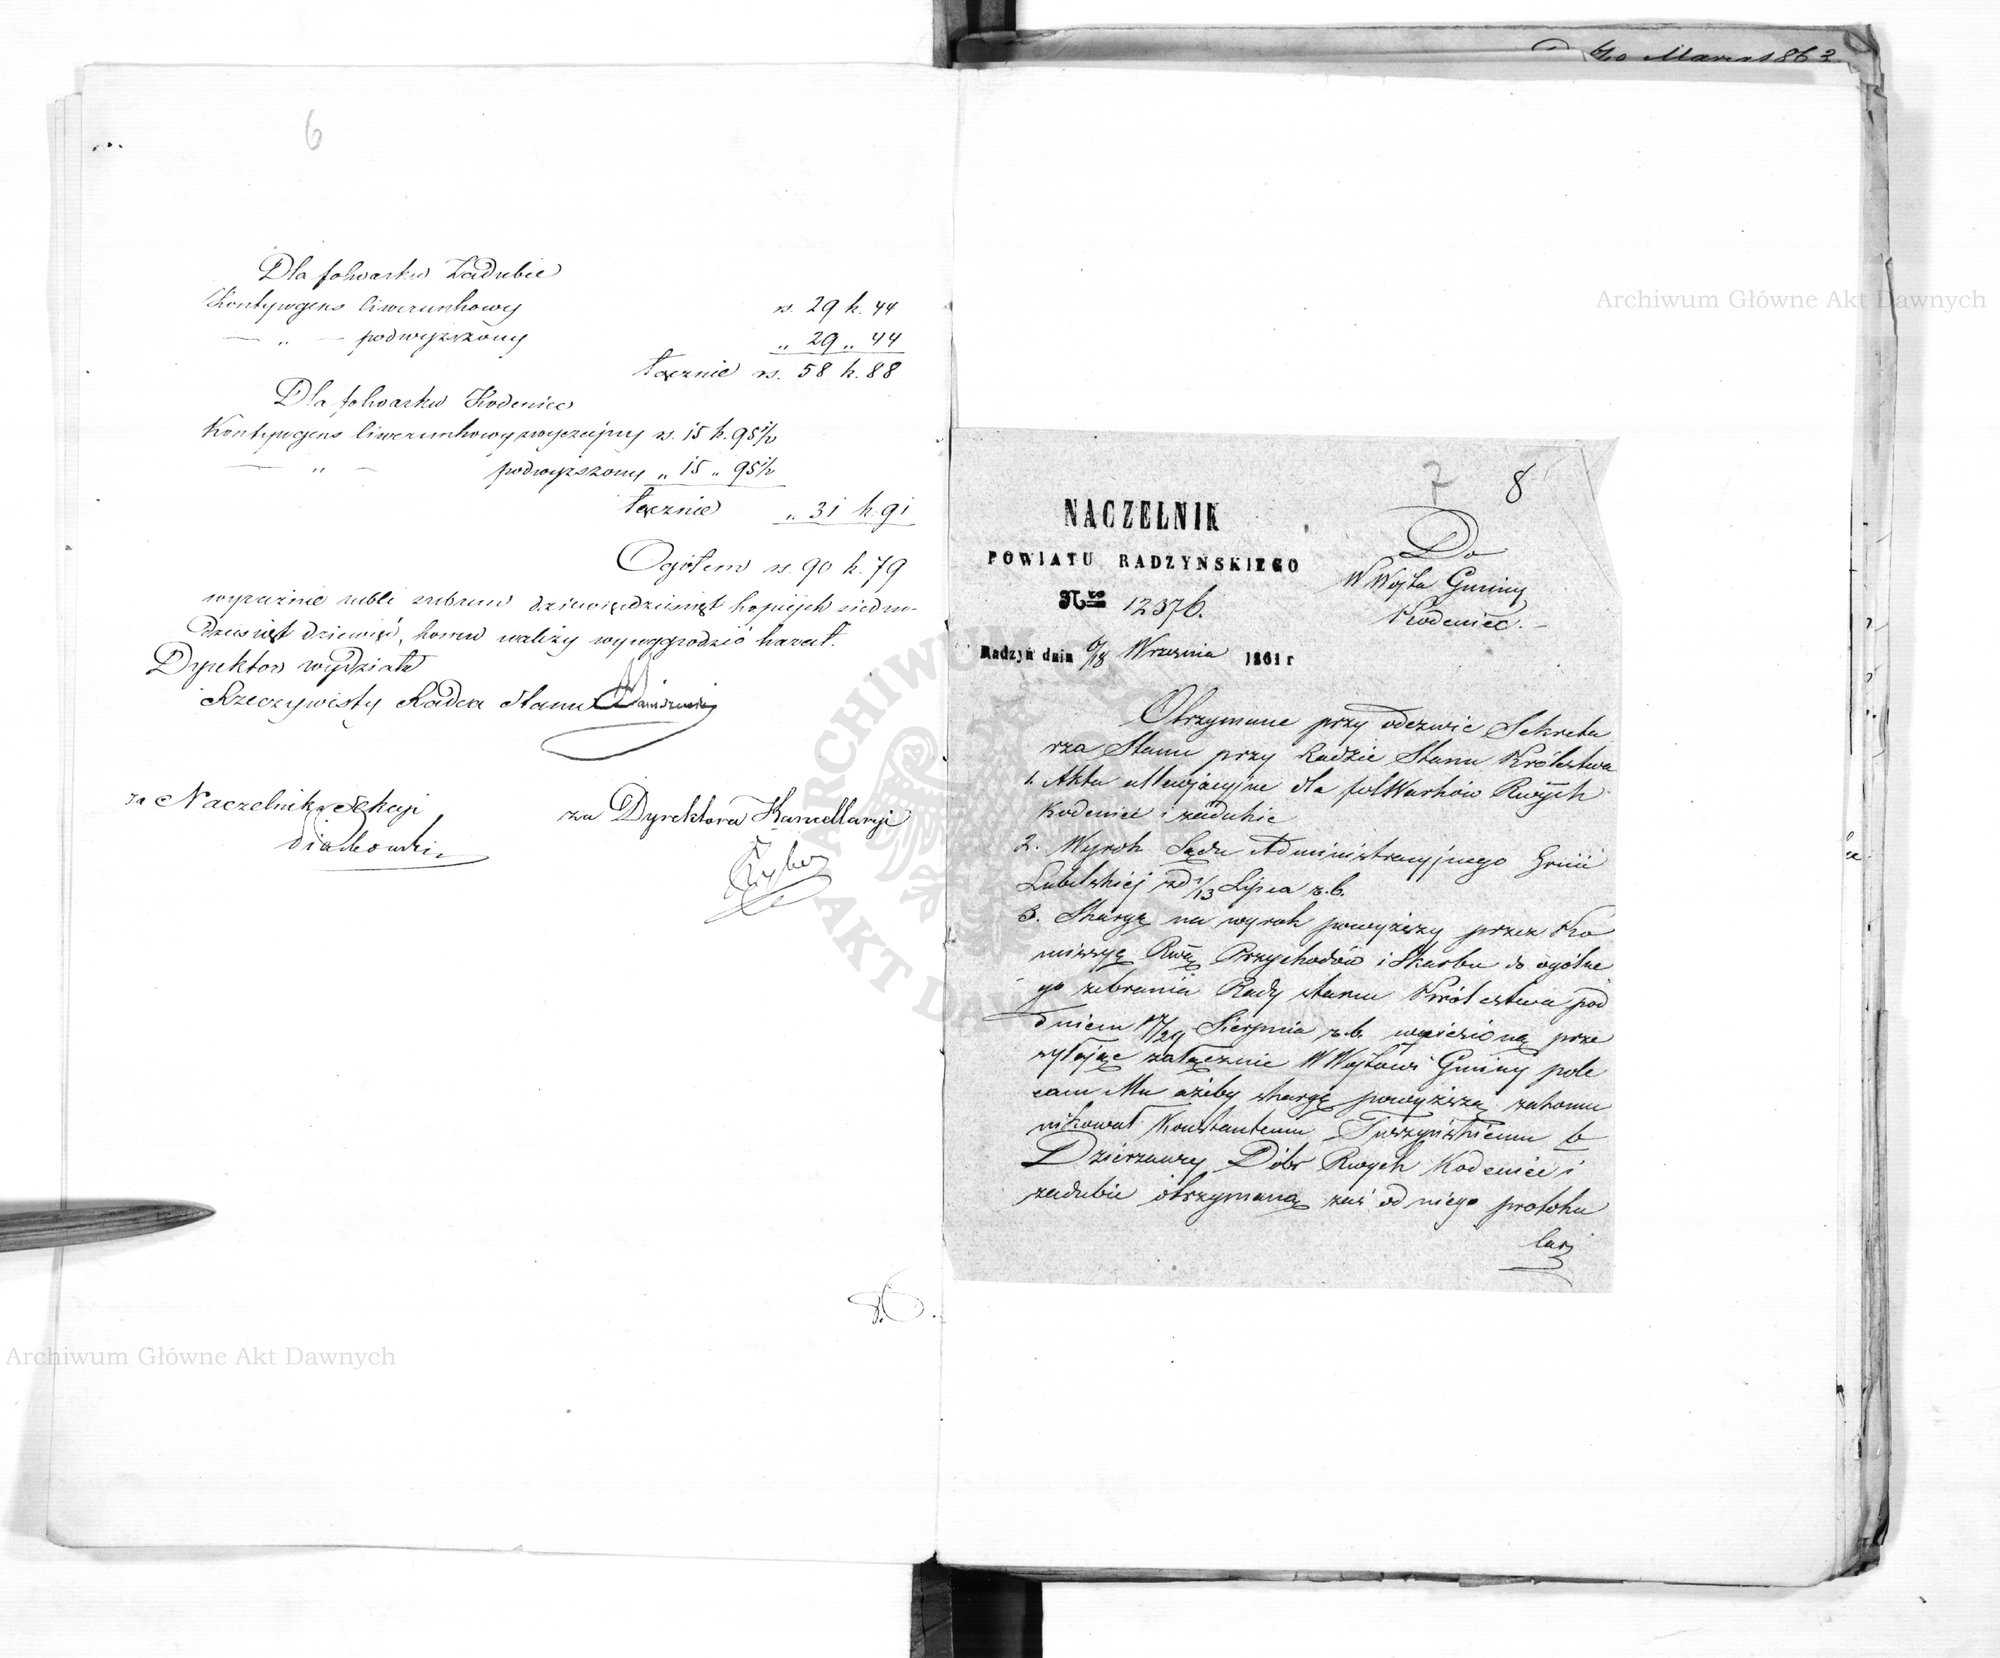 6
Dla folwarku Zadubie
Kontyngens liwerunkowy rs. 29 k. 44
— „ — podwyższony „ 29 „ 44
łącznie rs. 58 k. 88
Dla folwarku Kodeniec
Kontyngens liwerunkowy zwyczajny rs. 15 k. 95 1/2
— „ — podwyższony „ 15 „ 95 1/2
łącznie „ 31 k. 91
Ogółem rs. 90 k. 79
wyraźnie rubli srebrem dziewięćdziesiąt kopiejek siedm-
dziesiąt dziewięć, komu należy wynagrodzić kazał.
Dyrektor wydziału
Rzeczywisty Radca Stanu
za Naczelnika Sekcyi
za Dyrektora Kancellaryi
Marca 1863
7 8
NACZELNIK
POWIATU RADZYŃSKIEGO
Nro 12376.
Radzyń dnia 6/18 Września 1861 r
Do
W Wójta Gminy
Kodeniec.
Otrzymane przy odezwie Sekreta
rza Stanu przy Radzie Stanu Królestwa
1. Akta allewjacyjne dla folwarków Rwych
Kodeniec i Zadubie
2. Wyrok Sądu Administracyjnego Gnii
Lubelskiej zd 1/13 Lipca r.b.
3. Skargę na wyrok powyższy przez Ko
missyę Rwą Przychodów i Skarbu do ogólne
go zebrania Rady stanu Królestwa pod
dniem 17/29 Sierpnia r.b. wniesioną prze
syłając załącznie W Wójtowi Gminy pole
cam Mu ażeby skargę powyższą zakomu
nikował Konstantemu Turzyńskiemu b
Dzierżawcy Dóbr Rwych Kodeniec i
Zadubie otrzymaną zaś od niego protoku
larz